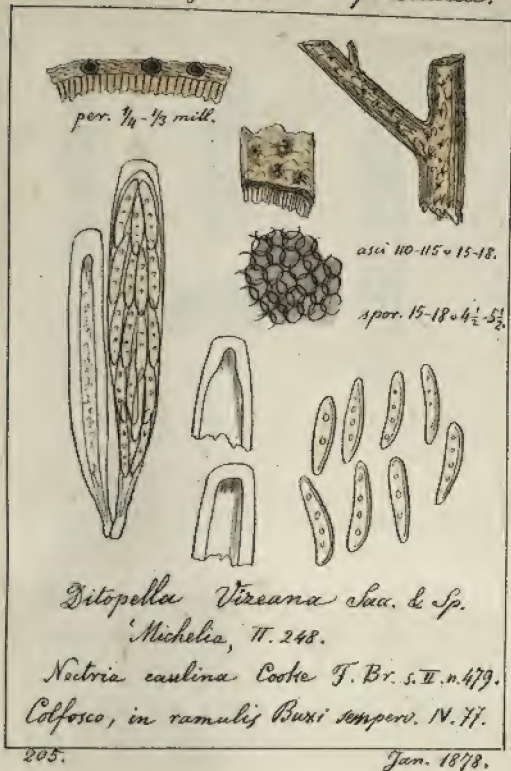 per. 1/4-1/3 mill.
asci 110-115 ∘ 15-18.
spor. 15-18 ∘ 4 1/2-5 1/2.
Ditopella Vizeana Sac. & Sp.
Michelia, II. 248.
Nectria caulina Cooke F. Br. s. II. n. 479.
Colfosco, in ramulis Buxi semperv. IV. 77.
205. Jan. 1878.